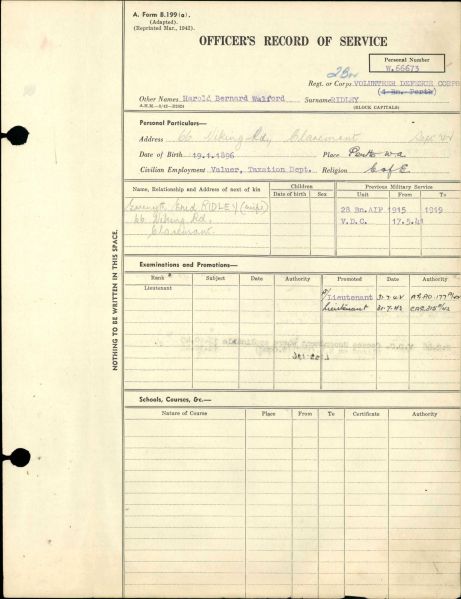 A. Form B.199 (a).
(Adapted).
(Reprinted Mar., 1942).
OFFICER'S RECORD OF SERVICE
Personal Number
W.66673
2 Bn
Regt. or Corps VOLUNTEER DEFENCE CORPS
(1 Bn. Perth)
Other Names Harold Bernard Walford Surname RIDLEY
(BLOCK CAPITALS)
Personal Particulars—
Address 66 Viking Rd, Claremont
Date of Birth 19.1.1896 Place Perth W.A
Civilian Employment Valuer, Taxation Dept. Religion C of E
Name, Relationship and Address of next of kin
Children
Date of birth Sex
Previous Military Service
Unit From To
Enid RIDLEY (wife)
66 Viking Rd,
Claremont
28 Bn.AIF 1915 1919
V.D.C. 17.5.41
Examinations and Promotions—
Rank Subject Date Authority Promoted Date Authority
Lieutenant
Lieutenant 31-7-42
Lieutenant 31-7-42
NOTHING TO BE WRITTEN IN THIS SPACE.
Schools, Courses, &c.—
Nature of Course Place From To Certificate Authority